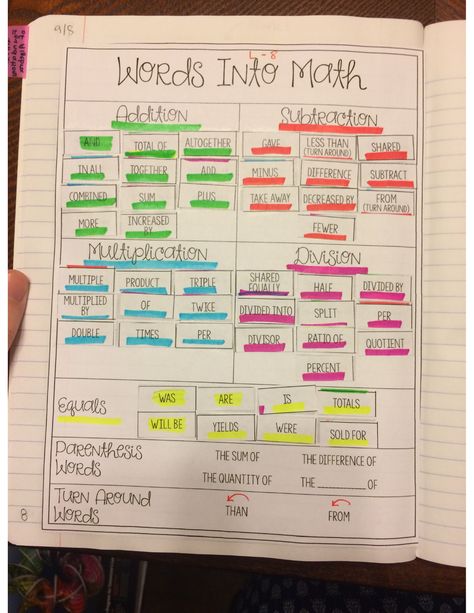 9/8
L-8
Words Into Math
Addition
AND
TOTAL OF
ALTOGETHER
IN ALL
TOGETHER
ADD
COMBINED
SUM
PLUS
MORE
INCREASED BY
Subtraction
GAVE
LESS THAN (TURN AROUND)
SHARED
MINUS
DIFFERENCE
SUBTRACT
TAKE AWAY
DECREASED BY
FROM (TURN AROUND)
FEWER
Multiplication
MULTIPLE
PRODUCT
TRIPLE
MULTIPLIED BY
OF
TWICE
DOUBLE
TIMES
PER
Division
SHARED EQUALLY
HALF
DIVIDED BY
DIVIDED INTO
SPLIT
PER
DIVISOR
RATIO OF
QUOTIENT
PERCENT
Equals
WAS
ARE
IS
TOTALS
WILL BE
YIELDS
WERE
SOLD FOR
Parenthesis Words
THE SUM OF
THE DIFFERENCE OF
THE QUANTITY OF
THE __________ OF
Turn Around Words
THAN
FROM
8